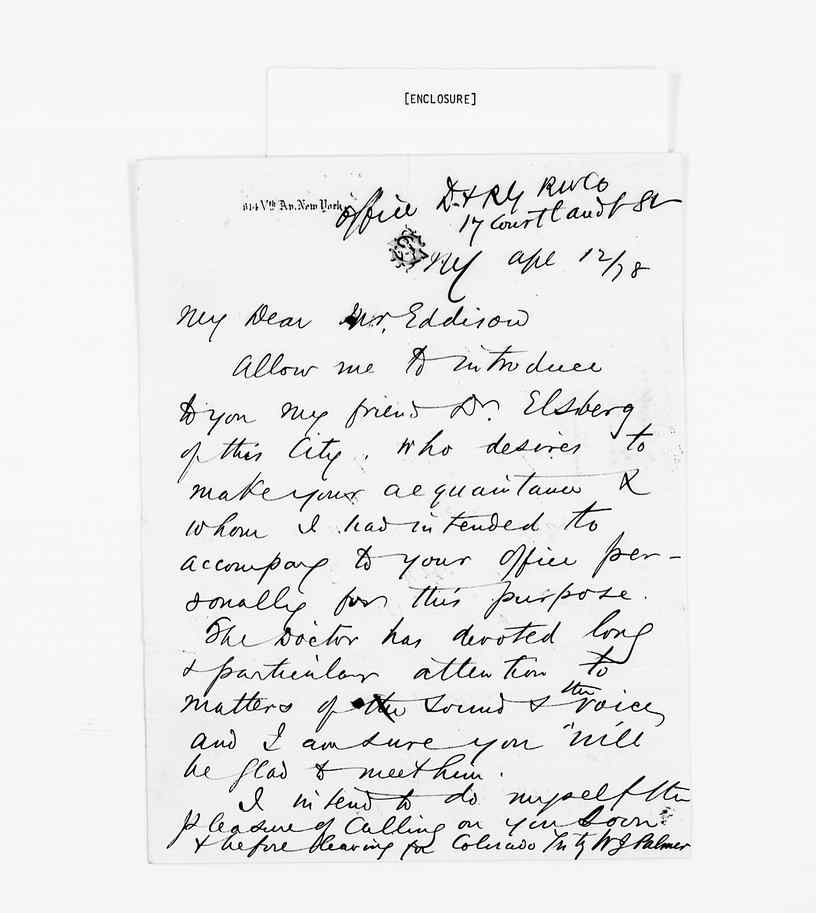 [ENCLOSURE]
614 Vth Av. New York.
Office D. & R G RW Co
17 Courtlandt St
NY Apl 12/78
My Dear Mr. Eddison
Allow me to introduce
to you my friend Dr. Elsberg
of this City, who desires to
make your acquaintance &
whom I had intended to
accompany to your office per-
sonally for this purpose.
The Doctor has devoted long
& particular attention to
matters of sound & the voice
and I am sure you will
be glad to meet him.
I intend to do myself the
pleasure of calling on you soon
& before leaving for Colorado Trly W J Palmer